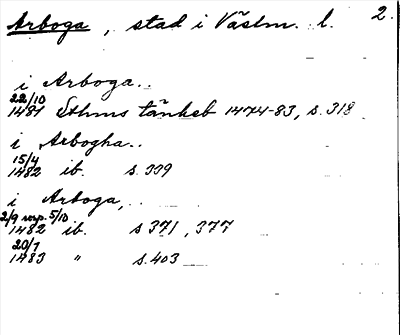 Arboga, stad i Västm. l. 2.
i Arboga..
22/10
1481 Sthms tänkeb 1474-83, s. 318
i Arbogha..
15/4
1482 ib. s. 339
i Arboga,..
2/9 resp. 5/10
1482 ib. s 371, 377
20/1
1483 " s. 403